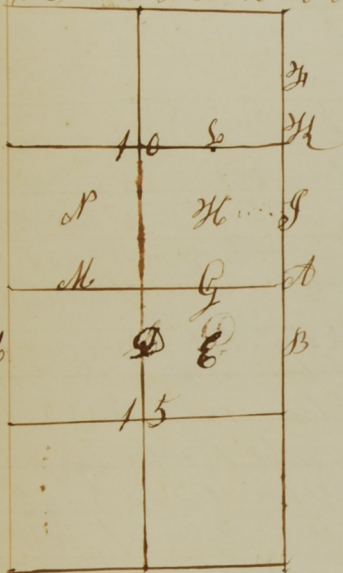 F
10 L K
N H J
M G A
D E B
15